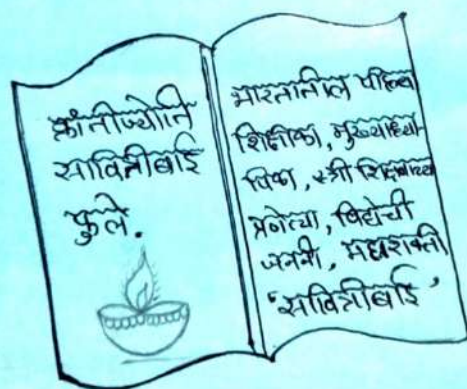 क्रांतीज्योति
सावित्रीबाई
फुले.
भारतातील पहिल्या
शिक्षीका, मुख्याध्या-
पिका, स्त्री शिक्षणाच्या
प्रणेत्या, विद्येची
जननी, महाशक्ती
"सावित्रीबाई"